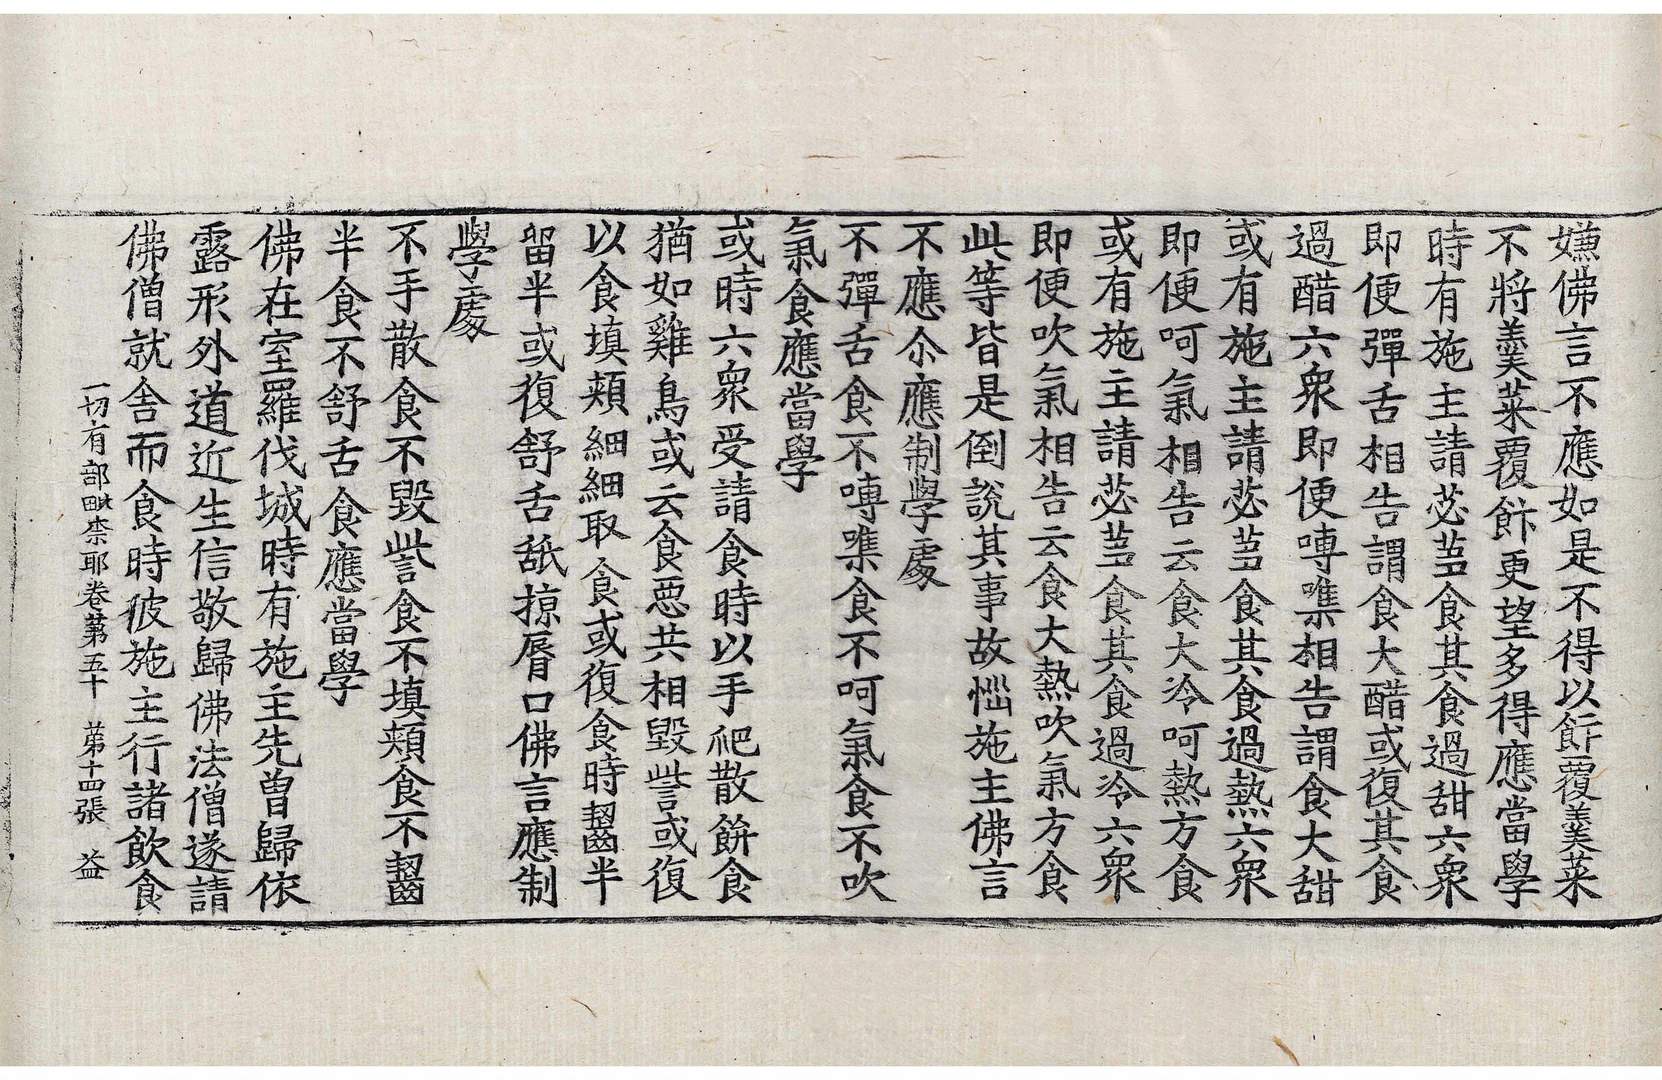 嫌佛言不應如是不得以飰覆羹菜
不將羹菜覆飰更望多得應當學
時有施主請苾芻食其食過甜六衆
即便彈舌相告謂食大醋或復其食
過醋六衆即便嚩㗱相告謂食大甜
或有施主請苾芻食其食過熱六衆
即便呵氣相告云食大冷呵熱方食
或有施主請苾芻食其食過冷六衆
即便吹氣相告云食大熱吹氣方食
此等皆是倒說其事故惱施主佛言
不應尒應制學處
不彈舌食不嚩㗱食不呵氣食不吹
氣食應當學
或時六衆受請食時以手爬散餅食
猶如雞鳥或云食惡共相毀訾或復
以食填頰細細取食或復食時齧半
留半或復舒舌舐掠脣口佛言應制
學處
不手散食不毀訾食不填頰食不齧
半食不舒舌食應當學
佛在室羅伐城時有施主先曾歸依
露形外道近生信敬歸佛法僧遂請
佛僧就舍而食時彼施主行諸飲食
一切有部毗柰耶卷苐五十　苐十四張　益